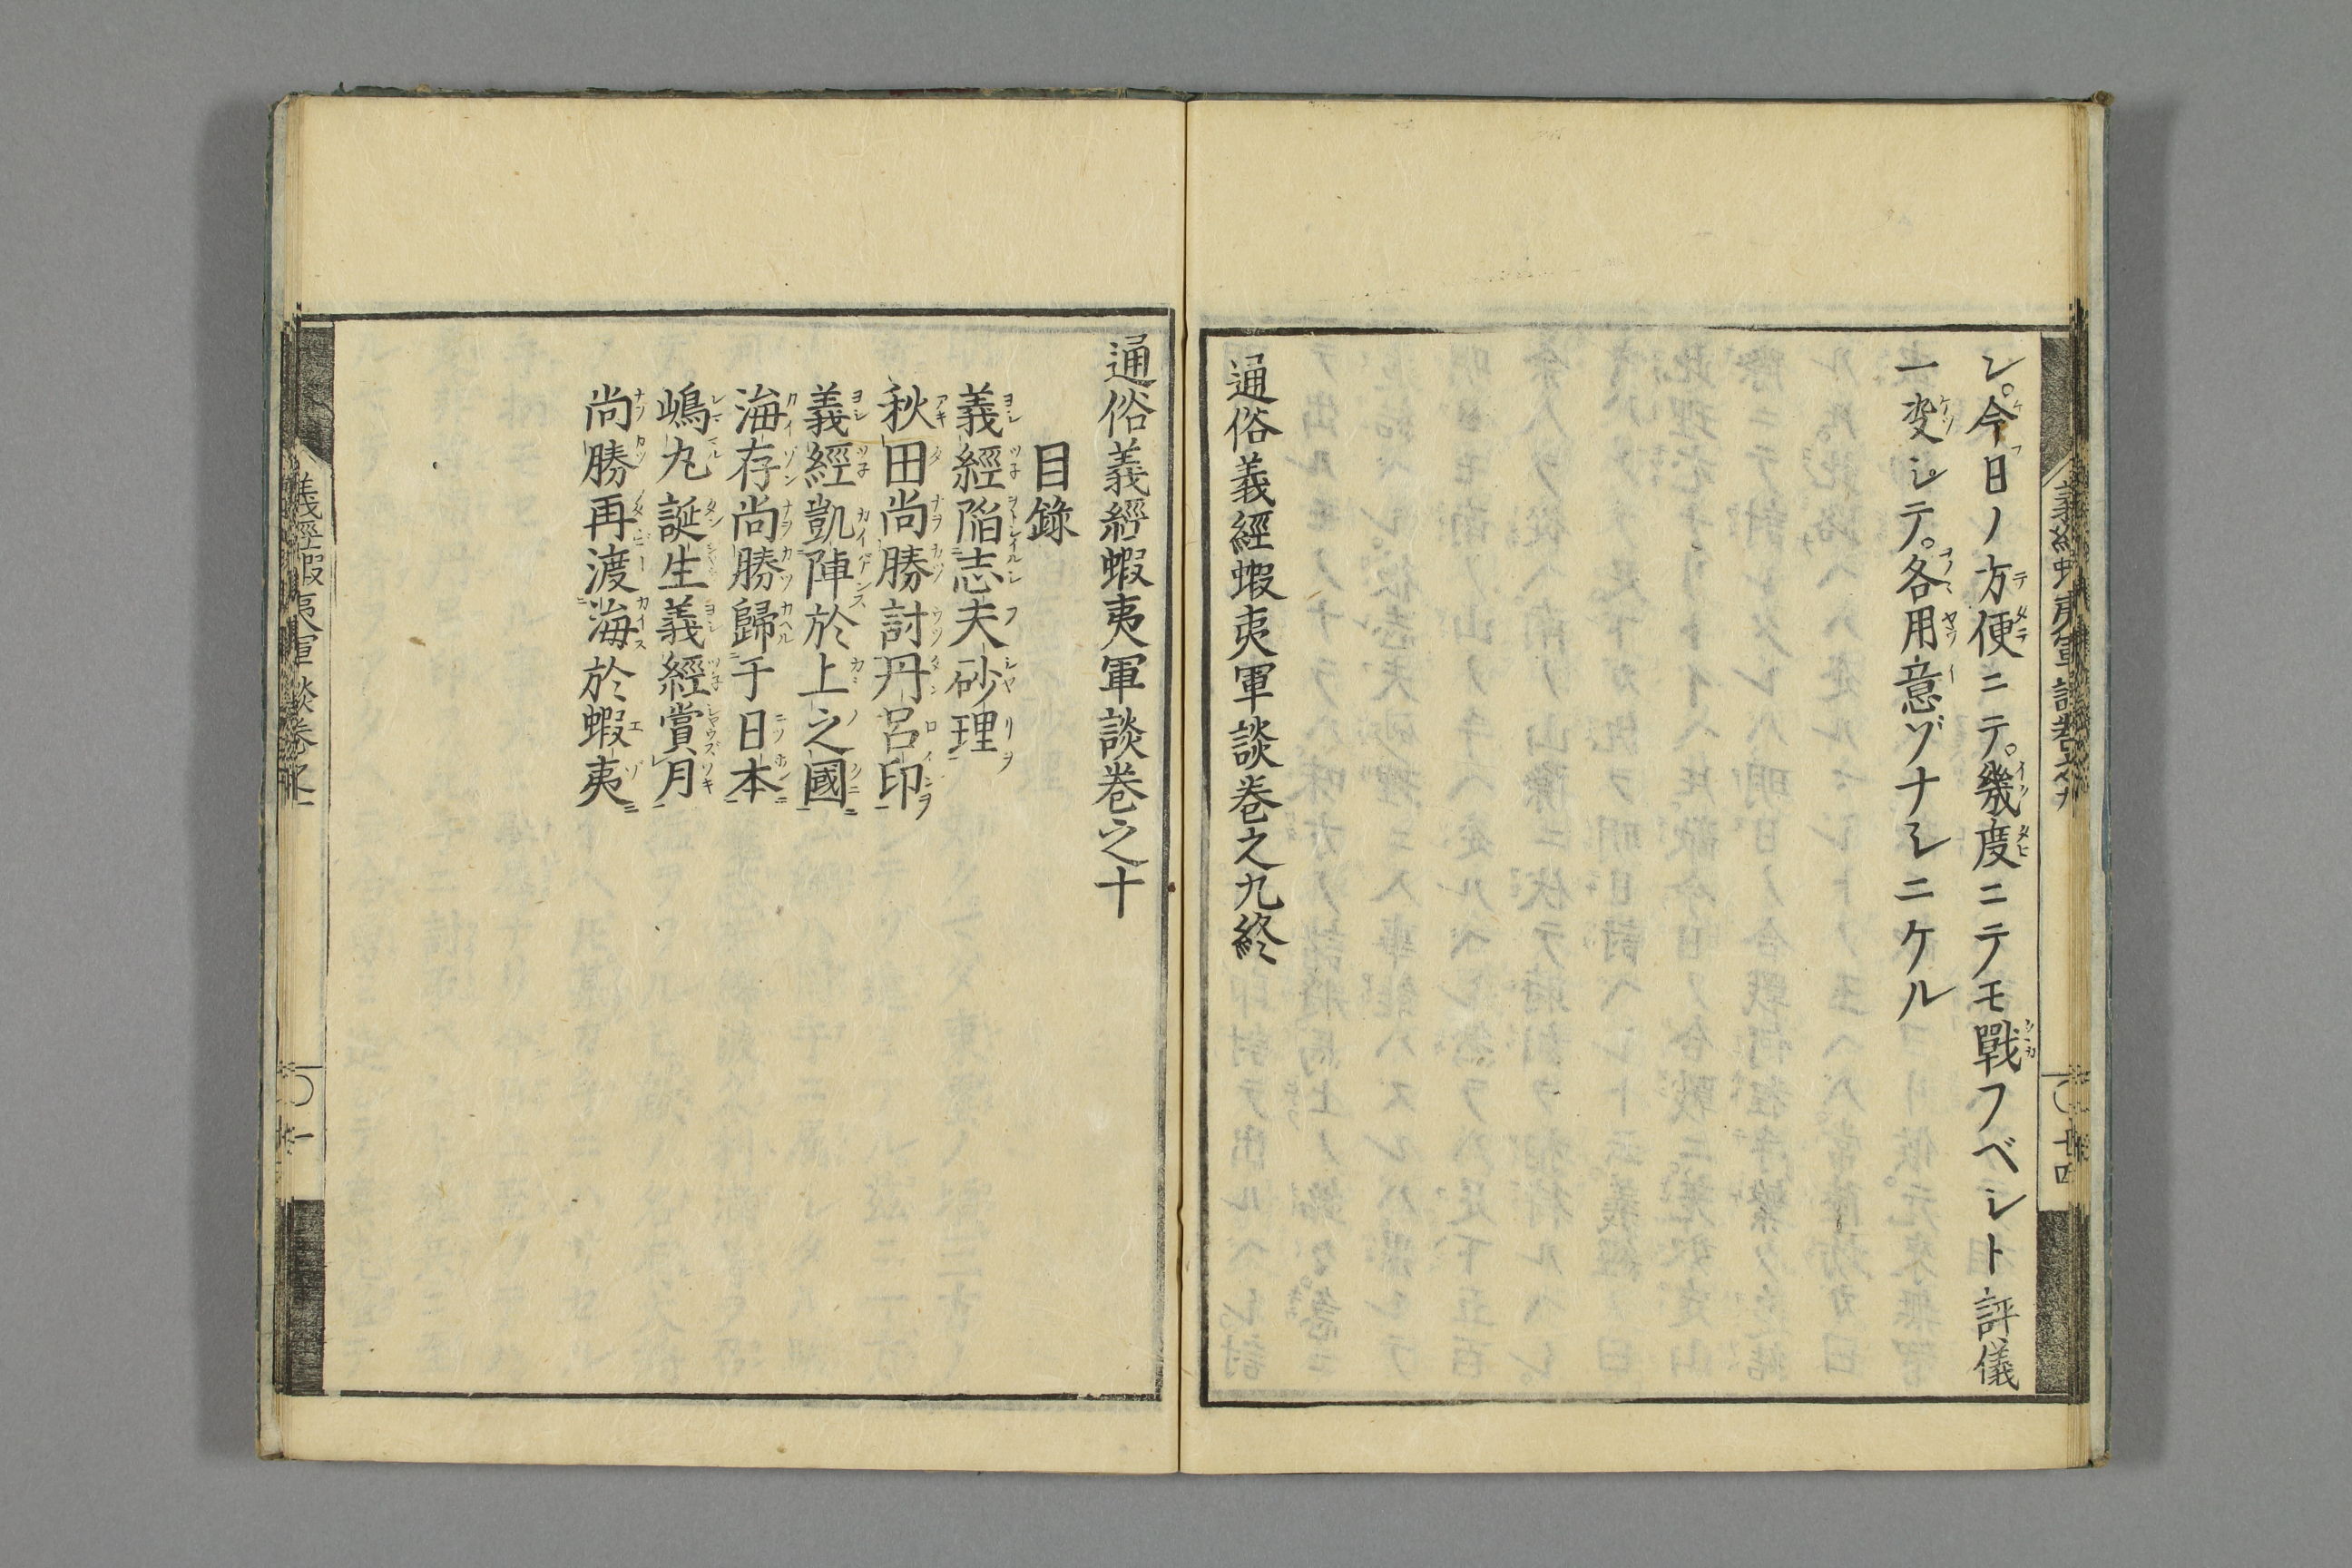 シ。今日ノ方便ニテ。幾度ニテモ戰フベシト評儀
一変シテ。各用意ゾナシニケル
通俗義經蝦夷軍談巻之九終
通俗義經蝦夷軍談巻之十
目錄
義經陷志夫砂理
秋田尚勝討丹呂印
義經凱陣於上之國
海存尚勝歸于日本
嶋丸誕生義經賞月
尚勝再渡海於蝦夷
義經蝦夷軍談巻之十